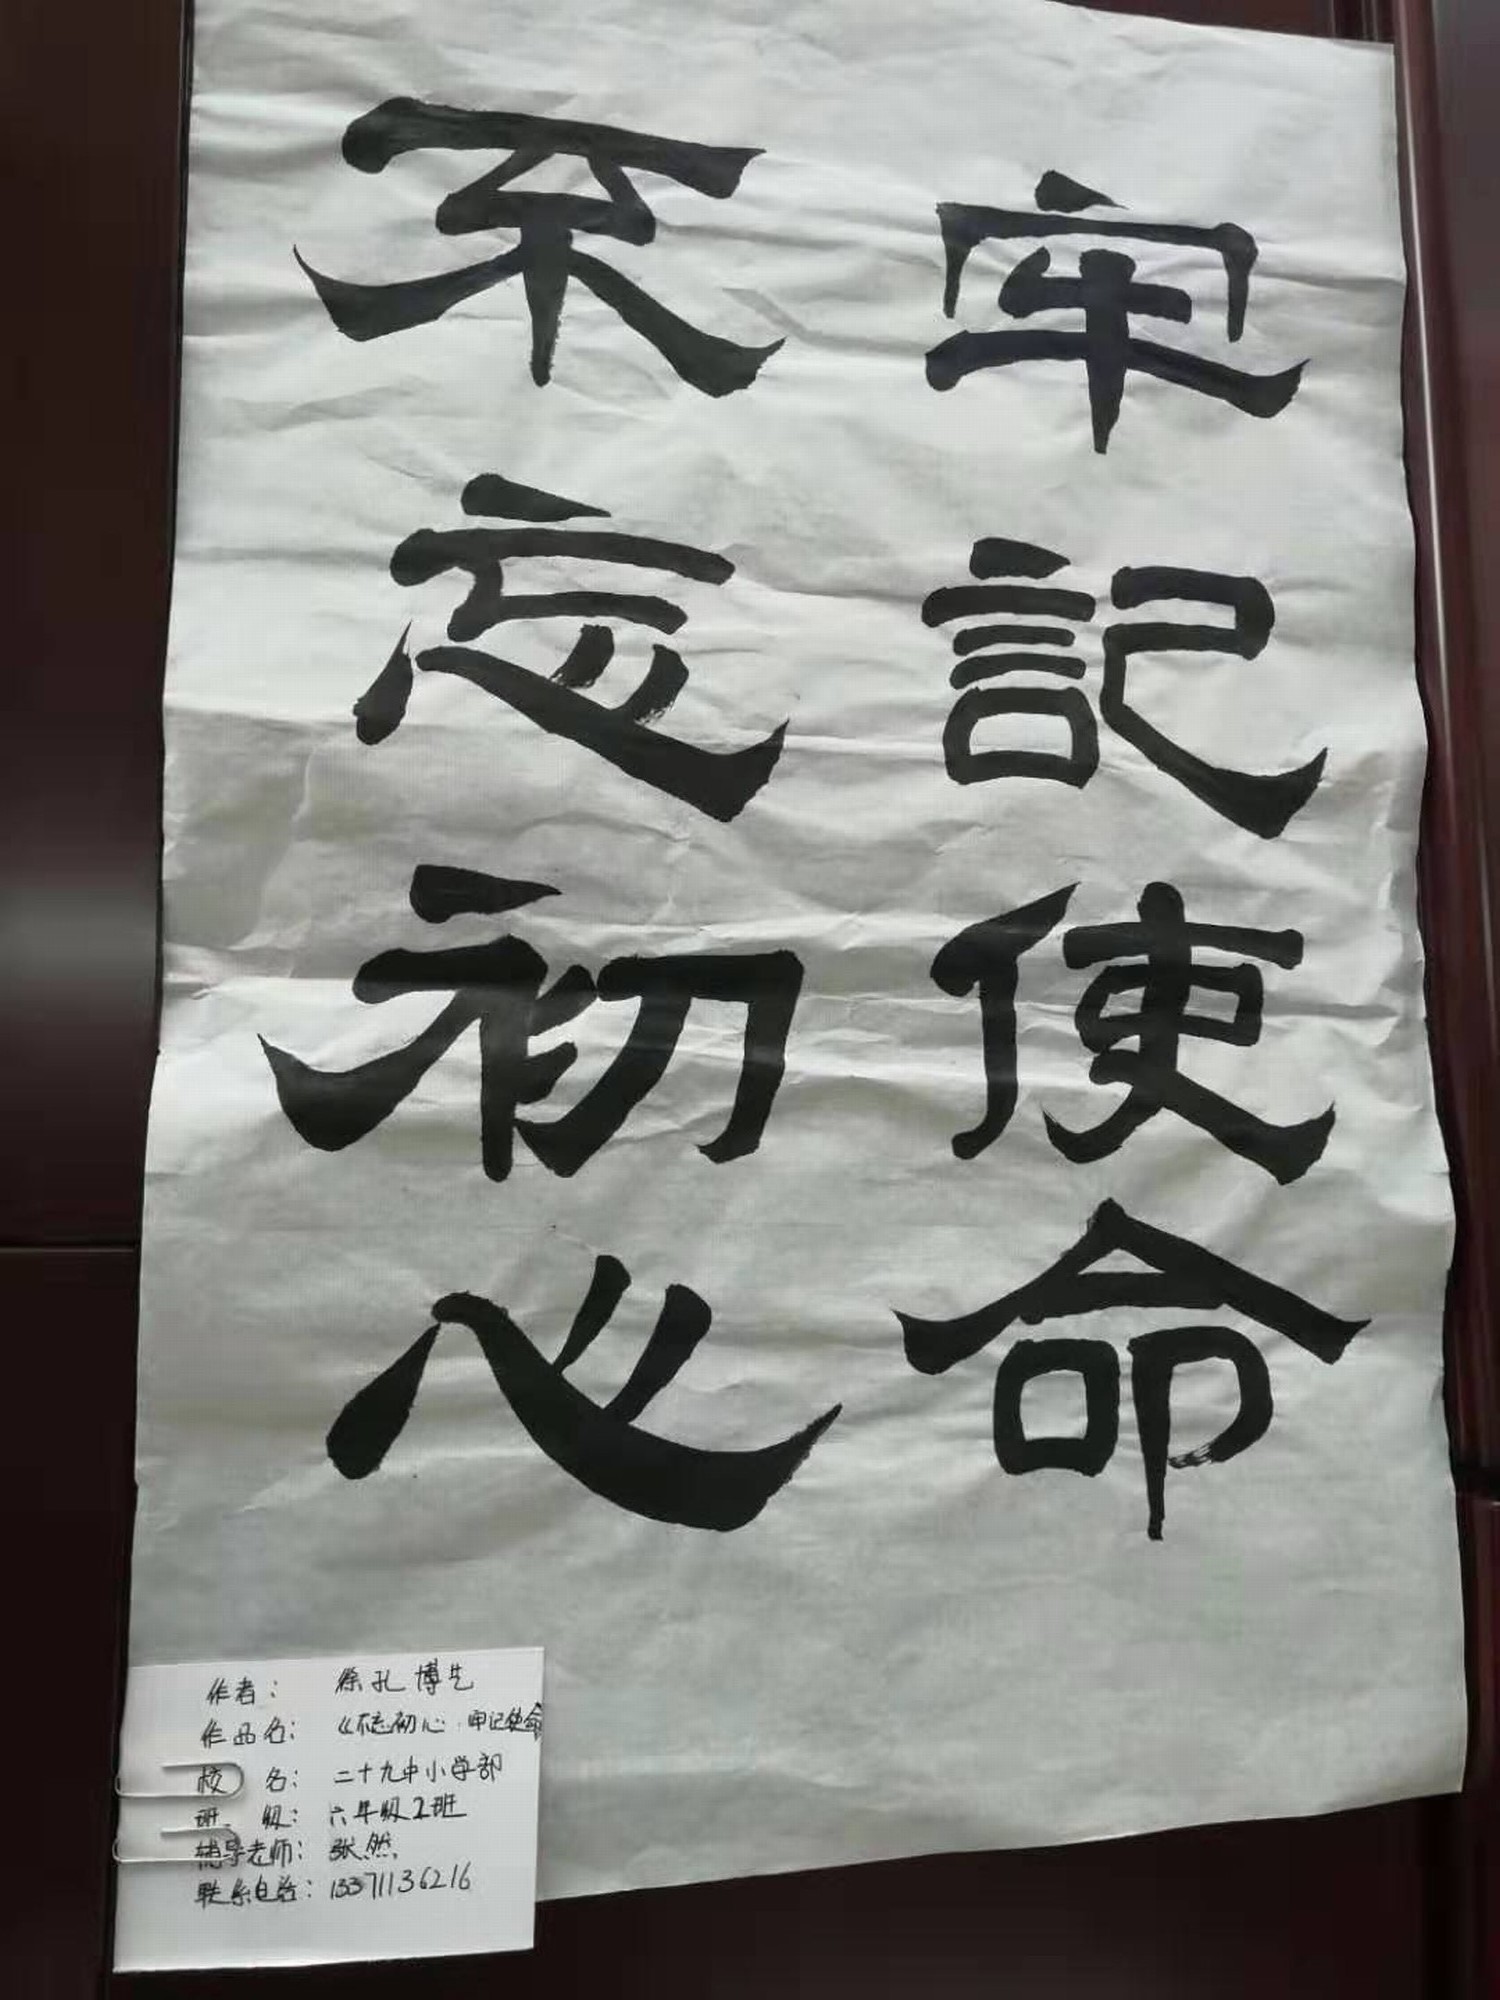 不忘初心
牢記使命
作者： 徐孔博生
作品名： 《不忘初心 牢记使命
校 名： 二十九中小学部
班 级： 六年级2班
辅导老师： 张然
联系电话： 13371136216